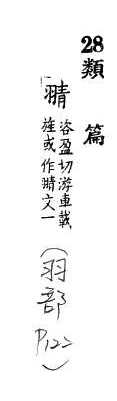 28類篇
咨盈切游車載
旌或作文一
(羽部 P122)